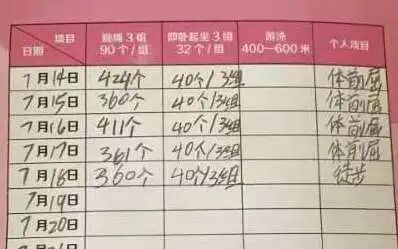 项目 跳绳3组 仰卧起坐3组 游泳 个人项目
日期 90个/组 32个/组 400—600米
7月14日 424个 40个/3组 体前屈
7月15日 360个 40个/3组 体前屈
7月16日 411个 40个/3组 体前屈
7月17日 361个 40个/3组 体前屈
7月18日 360个 40个/3组 徒步
7月19日
7月20日